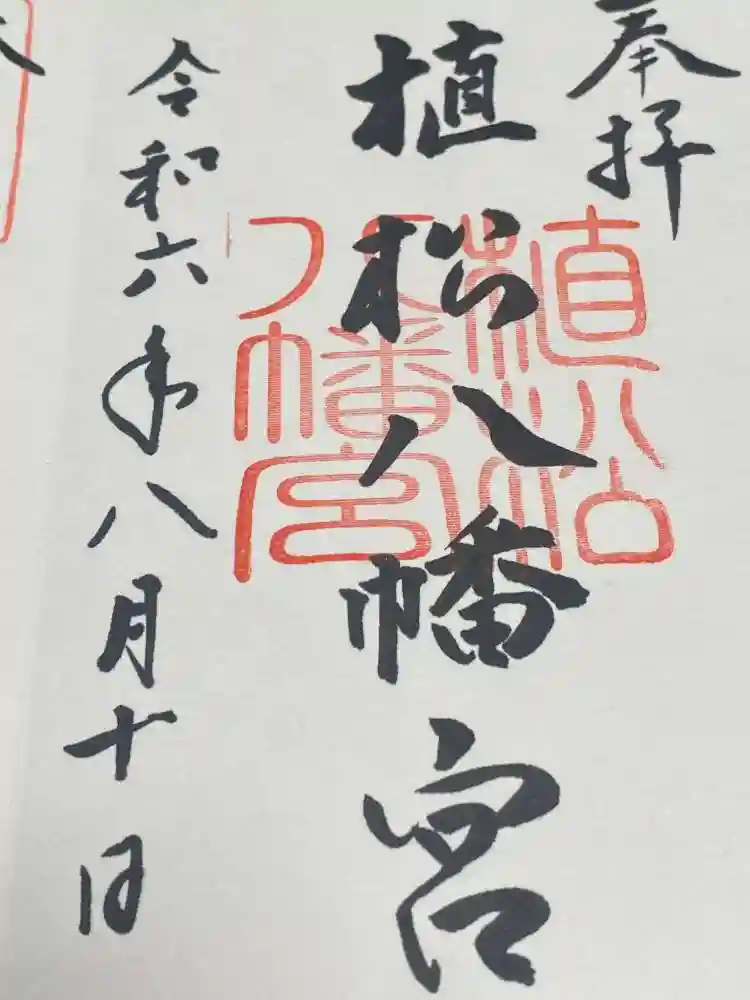 奉拝
植松八幡宮
植松八幡宮
令和六年八月十日